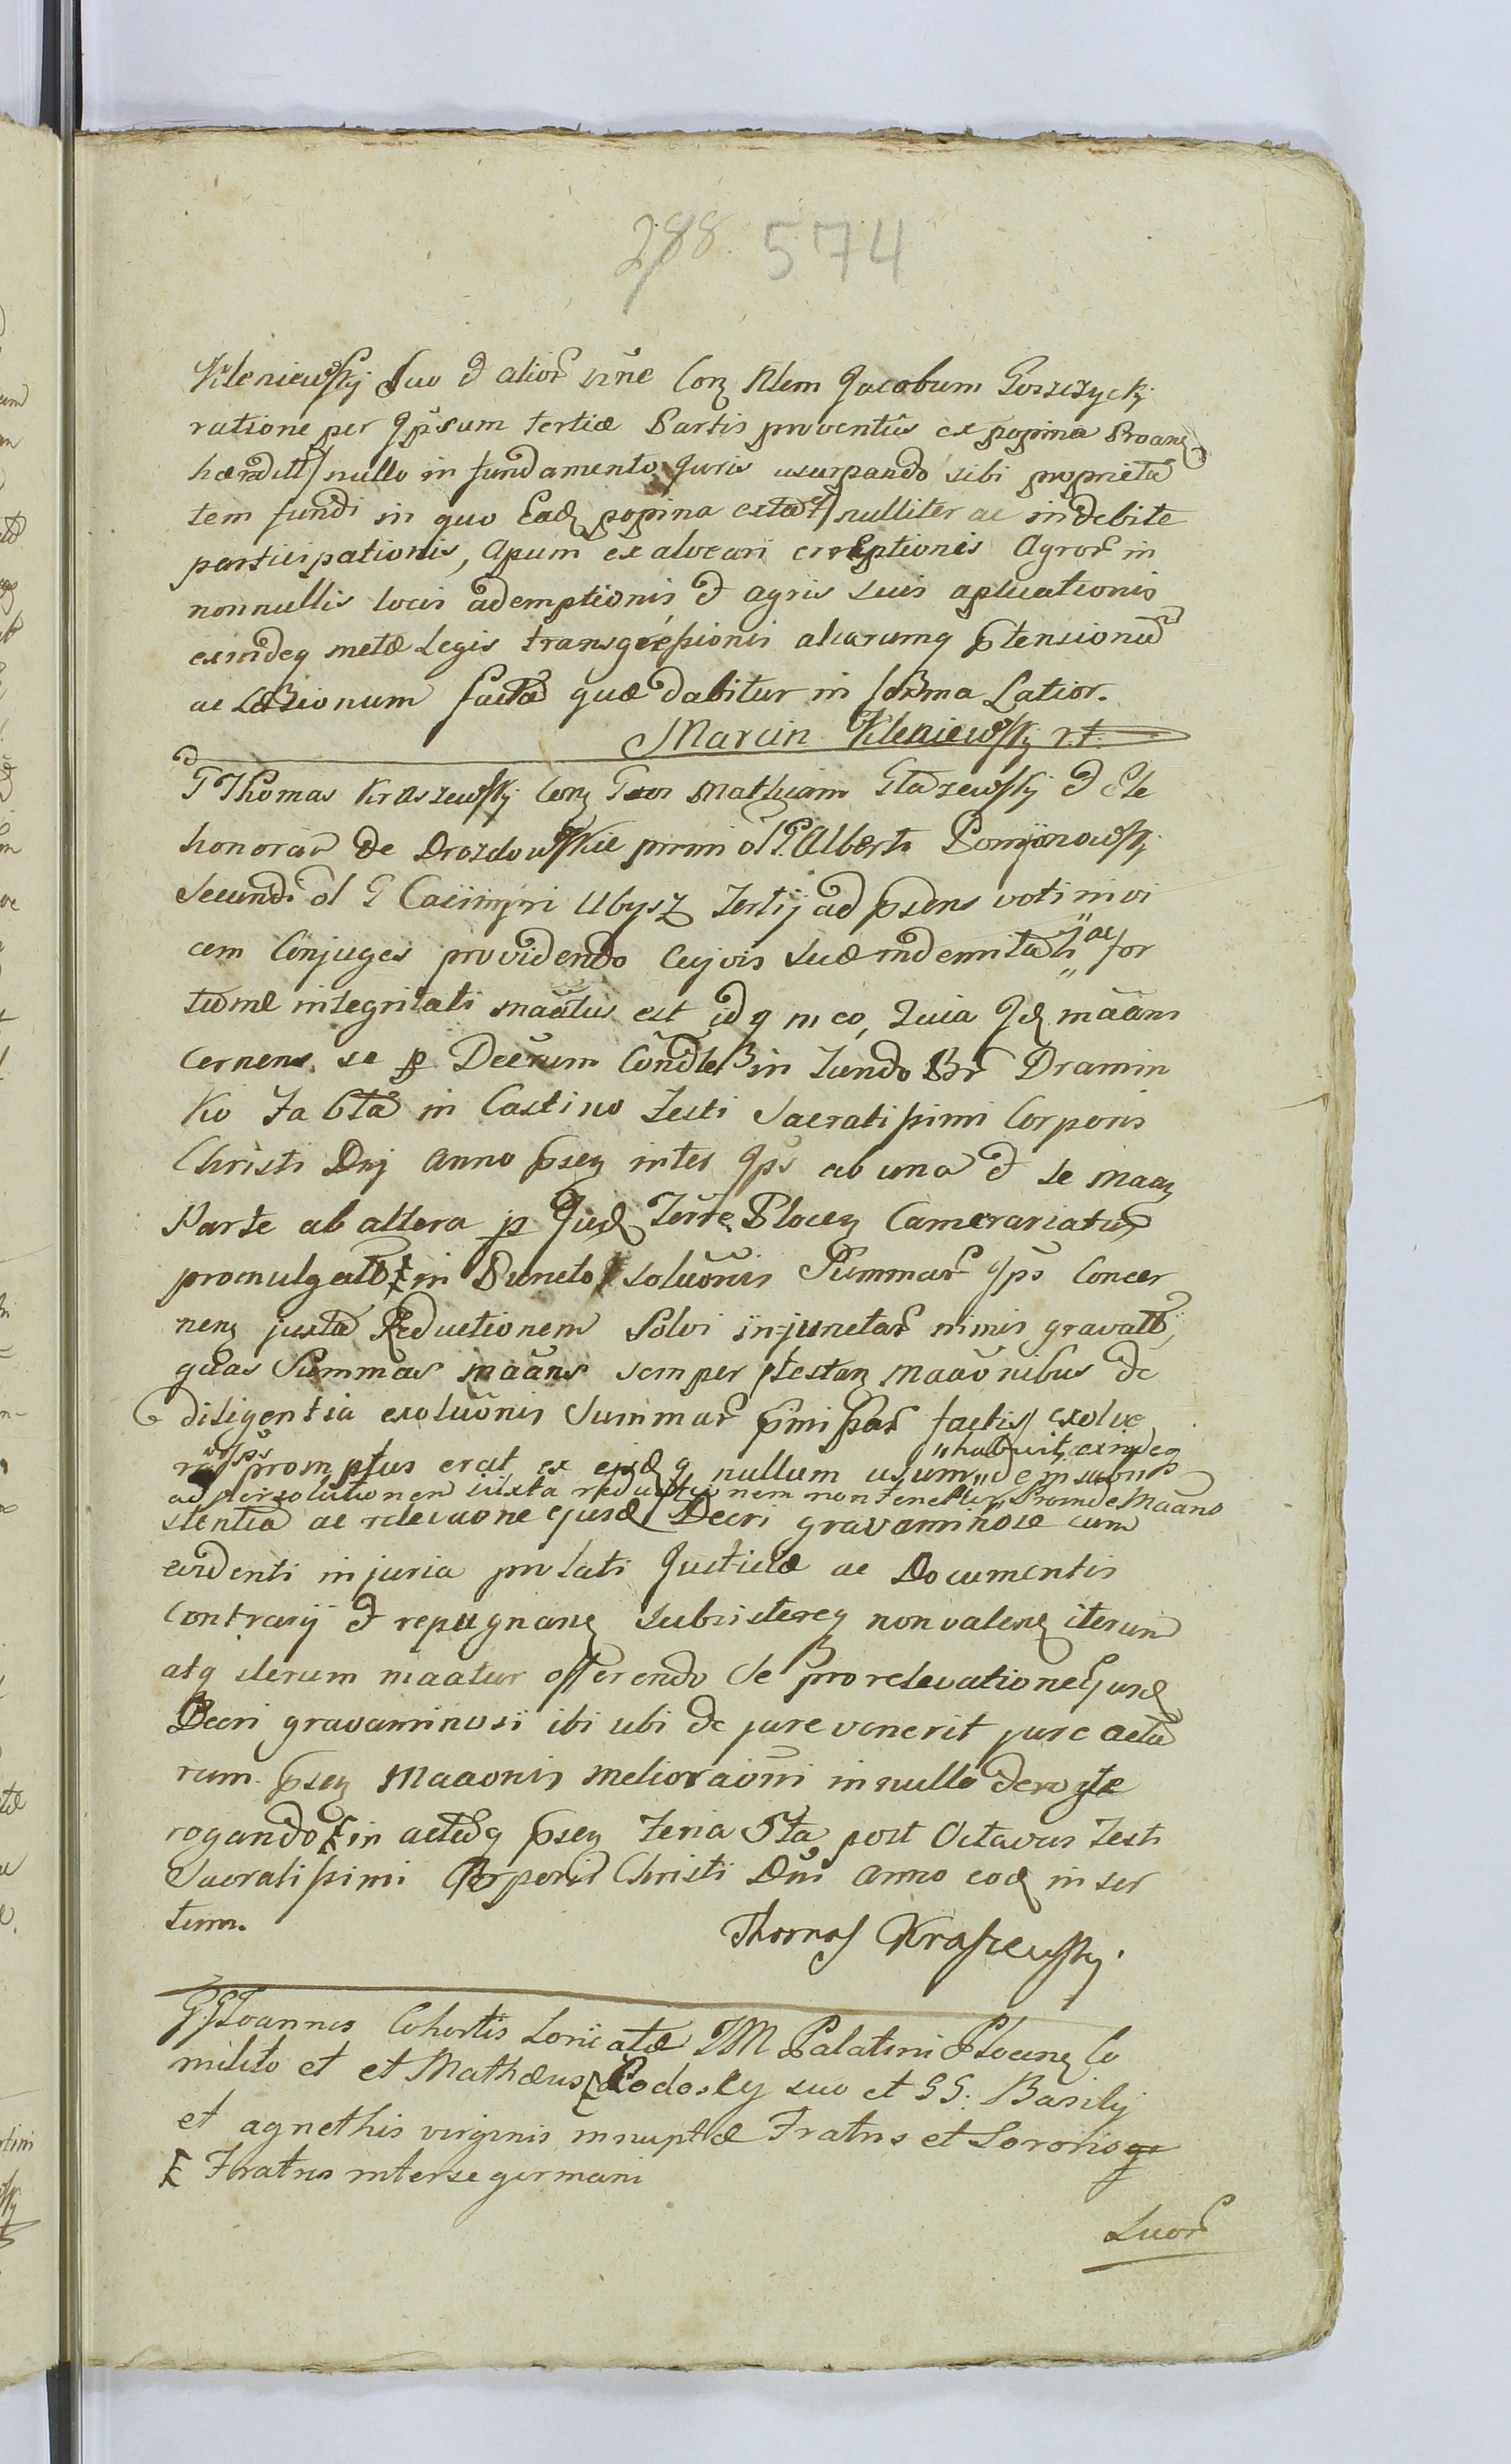 288. 574
Kleniewsky Suo et alior nne Con Nlem Jacobum Goszczycky
ratione per Ipsum tertiæ Partis proventus ex popina Proanz
hæreditt nullo in fundamento Juris usurpando sibi proprieta
tem fundi in quo Ead popina extat nulliter ac indebite
participationis, Apum ex alveari erreptionis Agror in
nonnullis locis ademptionis et agris suis aplicationis
exindeq metæ Legis transgressionis aliarumq ptensionu
ac Læsionum facta quæ dabitur in forma Latior.
Marcin Kleniewsky r.t.
G Thomas Kraszewsky Con Gsos Mathiam Glazewsky et Ele
honoram de Drozdowskie primi ol G. Alberti Pomjanowsky
Secundi ol G Casimiri Ubysz Tertij ad psens voti invi
cem Conjuges providendo Cujvis suæ indemnitati ac for
tunæ integritati maatus est idq in eo, Quia Id maans
Cernens se p Decrum Condle in fundo Bnr Dramin
ko fa 6ta in Castino festi Sacratissimi Corporis
Christi Dnj Anno psen inter Ips ab una et se maan
Parte ab altera p Jud Terre Plocen Camerariatus
promulgatt in Puncto solvonis Summar Ips Concer
nen juxta Reductionem Solvi injunctar nimis gravatt,
quas Summas maans semper ptestan maaonibus de
diligentia exoluonis Summar pmissar factis exolve
re Ips promptus erat ex ejsd q nullum usum habuit exindeq
ad persolutionem iuxta reductionem non tenetur Proinde Maans
stentia ac relevaone ejusd Decri gravaminose cum
evidenti injuria prolati Justitiæ ac Documentis
Contrarij et repugnan subsistereq non valen iterum
atq iterum maatur offerendo Se pro relevatione Ejusd
Decri gravaminosi ibi ubi de jure venerit jure actu
rum psen Maaonis melioraoni in nullo dero
rogando in actisq psen feria 5ta post Octavas festi
Sacratissimi Corporis Christi Dni Anno eod inser
tum.
Thomas Kraszewsky.
GG Joannes Cohortis Loricatæ IM Palatini Plocen Co
milito et et Mathæus Podoscy suo et GG. Basilij
et agnethis virginis innuptæ Fratris et Sororis
Fratres inter se germani
Suor